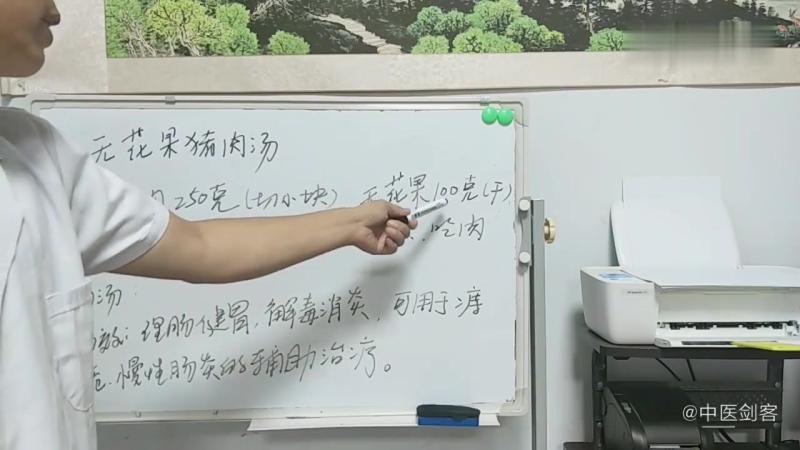 无花果猪肉汤
250克(切小块) 无花果100克(干)
吃肉
汤:
效:理肠健胃,解毒消炎,可用于痔
慢性肠炎的辅助治疗。
@中医剑客